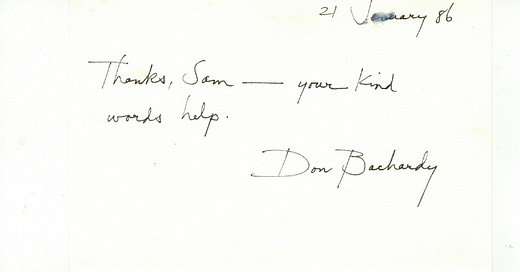 21 January 86
Thanks, Sam — your kind
words help.
Don Bachardy